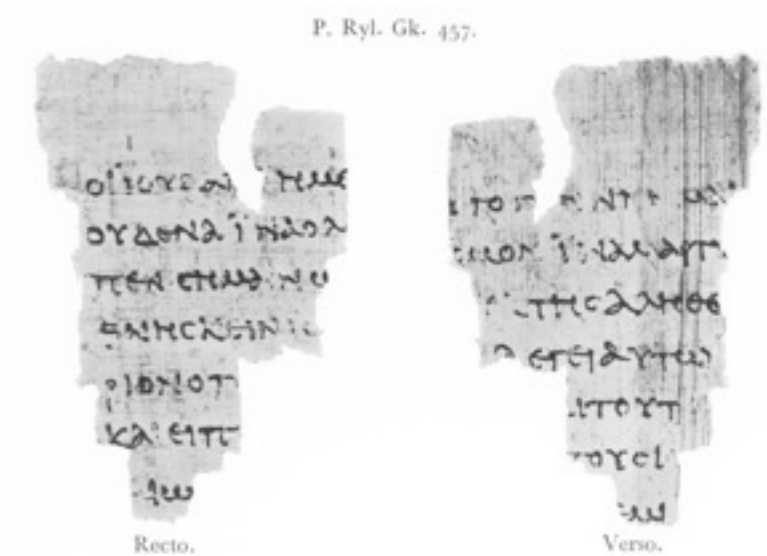 P. Ryl. Gk. 457.
ΟΙΙΟΥΔΑΙ ΗΜΕ
ΟΥΔΕΝΑΪΝΑΟΛ
ΠΕΝϹΗΜΑΙΝΩ
ΘΝΗϹΚΕΙΝΙϹ
ΡΙΟΝΟΠ
ΚΑΙΕΙΠ
ΑΙΩ
Recto.
ΤΟΓ
ϹΜΟΝΪΝΑΜΑΡΤΥ
ΤΗϹΑΛΗΘΕ
ΛΕΓΕΙΑΥΤΩ
ΑΙΤΟΥΤ
ΤΟΥϹΙ
ΜΙ
Verso.